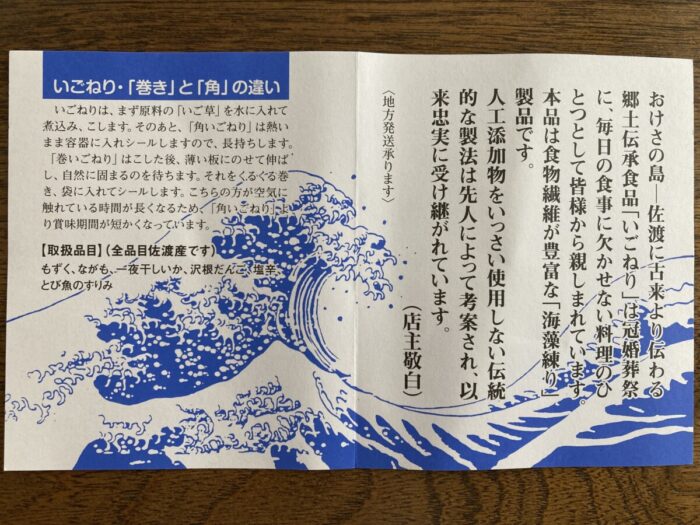 いごねり・「巻き」と「角」の違い
いごねりは、まず原料の「いご草」を水に入れて
煮込み、こします。そのあと、「角いごねり」は熱い
まま容器に入れシールしますので、長持ちします。
「巻いごねり」はこした後、薄い板にのせて伸ば
し、自然に固まるのを待ちます。それをくるぐる巻
き、袋に入れてシールします。こちらの方が空気に
触れている時間が長くなるため、「角いごねり」よ
り賞味期間が短かくなっています。
【取扱品目】(全品目佐渡産です)
もずく、ながも、一夜干しいか、沢根だんご、塩辛、
とび魚のすりみ
おけさの島―佐渡に古来より伝わる
郷土伝承食品「いごねり」は冠婚葬祭
に、毎日の食事に欠かせない料理のひ
とつとして皆様から親しまれています。
本品は食物繊維が豊富な「海藻練り」
製品です。
人工添加物をいっさい使用しない伝統
的な製法は先人によって考案され、以
来忠実に受け継がれています。
(店主敬白)
〈地方発送承ります〉